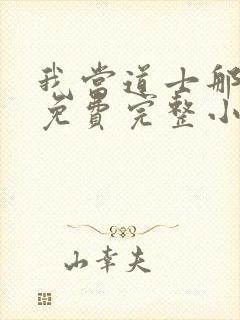 我当道士那
免费完整小
山幸夫